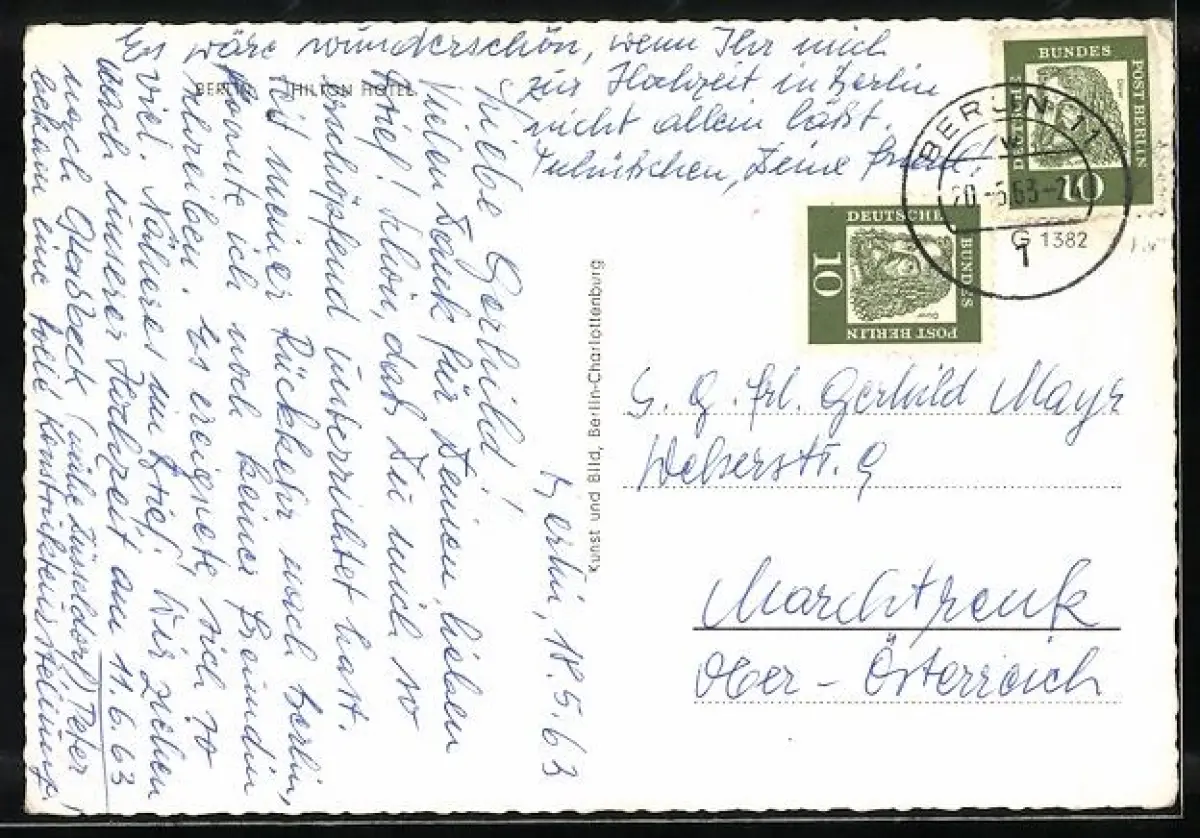 BERLIN HILTON HOTEL
Berlin, 18.5.63
Liebe Gerhild!
Vielen Dank für Deinen lieben
Brief! Schön, daß Du mich so
erschöpfend unterrichtet hast.
Seit meiner Rückkehr nach Berlin,
konnte ich noch keiner Freundin
schreiben. Es ereignete sich so
viel. Näheres im Brief. Wir ziehen
nach unserer Hochzeit am 11.6.63
nach (nähe Düsseldorf) Peter
bekam eine tolle Konstrukteurstellung.
Es wäre wunderschön, wenn Ihr mich
zur Hochzeit in Berlin
nicht allein läßt.
Deine
Kunst und Bild, Berlin-Charlottenburg
DEUTSCHE BUNDESPOST BERLIN
Dürer
10
DEUTSCHE BUNDESPOST BERLIN
Dürer
10
BERLIN 11
20.-5.63-
G 1382
1
S. G. Frl. Gerhild Mayr
Weberstr. 9
Marchtrenk
Ober-Österreich